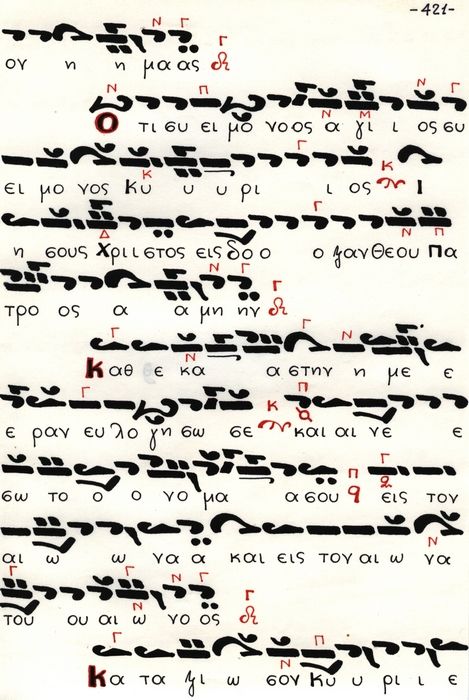 -421-
ον η η μα ας
Ο τι συ ει μο νο ος α γι ι ος συ
ει μο νος Κυ υ υ ρι ι ος Ι
η σους Χρι ι στος εις δο ο ο ξαν θε ου Πα
τρο ος α α μη ην
Καθ ε κα α στην η με ε
ε ραν ευ λο γη σω σε και αι νε ε
σω το ο ο νο μα α σου εις τον
αι ω ω να α και εις τον αι ω να
του ου αι ω νο ος
Κα τα ξι ω σον Κυ υ ρι ι ε